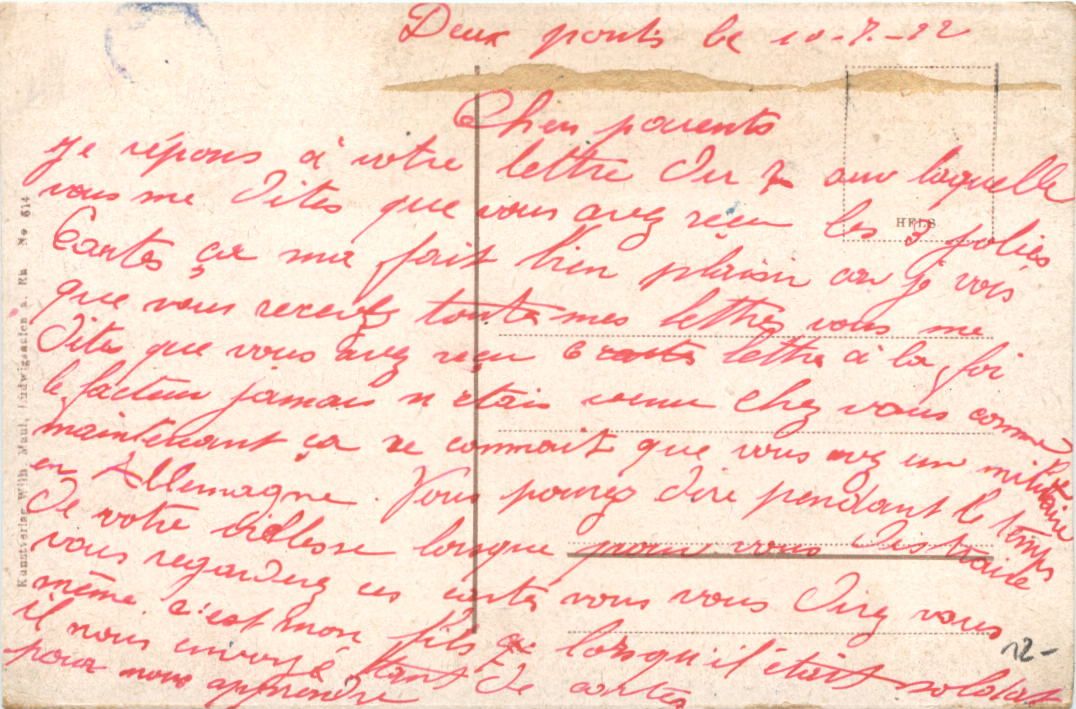 Deux ponts le 10-7-22
Chers parents
je répons à votre lettre du 7 sur laquelle
vous me dites que vous avez reçu les 3 jolies
Cartes ça ma fait bien plaisir car je vois
que vous recevez toute mes lettres vous me
dites que vous avez reçu 6 lettre à la foi
le facteur jamais n etais venu chez vous comme
maintenant ça se connait que vous avez un militaire
en Allemagne. Vous pourez dire pendant le temps
de votre viellesse lorsque pour vous distraire
vous regarderez ces cartes vous vous direz vous
même c'est mon fils lorsqu'il était soldat
il nous envoyé tant de cartes
pour nous apprendre
HELS
12-
Kunstverlag Wilh. Maul, Ludwigshafen a. Rh. No 614